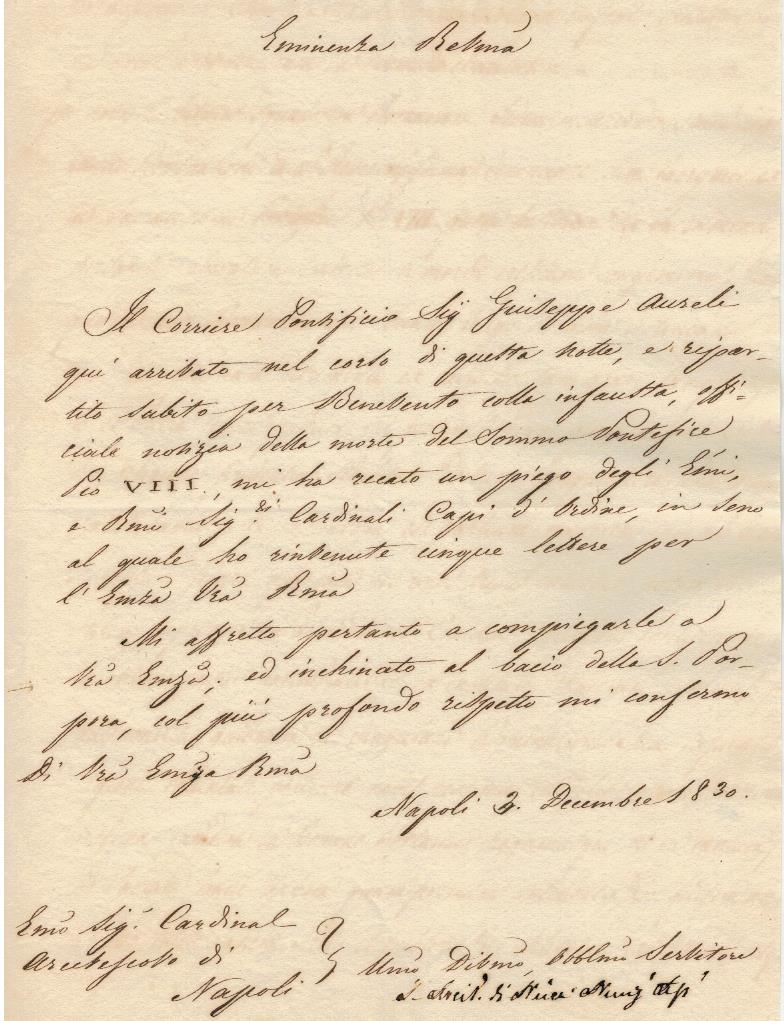 Eminenza Revma
Il Corriere Pontificio Sig Giuseppe Aureli
quì arrivato nel corso di questa notte, e ripar-
tito subito per Benevento colla infausta, offi-
ciale notizia della morte del Sommo Pontefice
Pio VIII., mi ha recato un piego degli Emi,
e Rmi Sig.ri Cardinali Capi d'Ordine, in seno
al quale ho rinvenute cinque lettere per
l'Emza Vra Rma
Mi affretto pertanto a compiegarle a
Vra Emza, ed inchinato al bacio della S. Por-
pora, col più profondo rispetto mi confermo
Di Vra Emza Rma
Napoli Decembre 1830.
Emo Sig.r Cardinal
Arcivescovo di
Napoli
Umo Divmo, Obblmo Servitore
di Nicea Nunz Ap